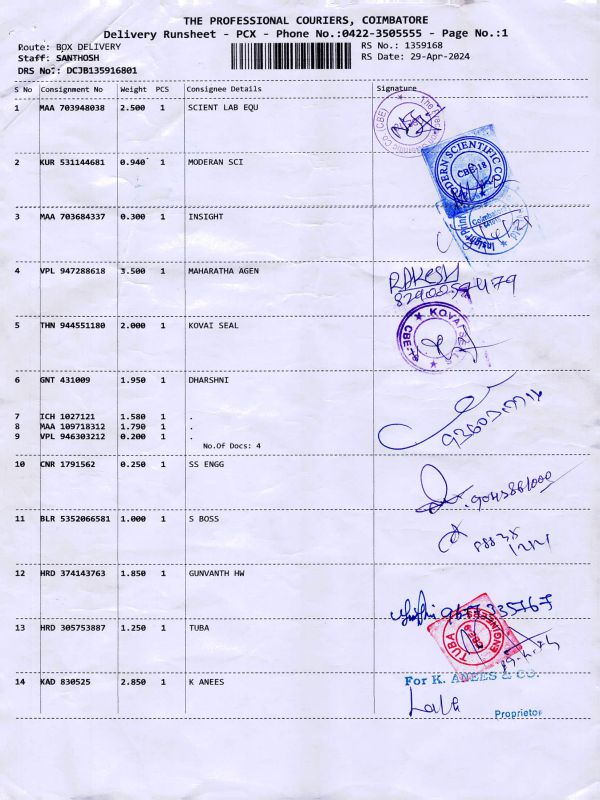 THE PROFESSIONAL COURIERS, COIMBATORE
Delivery Runsheet - PCX - Phone No.:0422-3505555 - Page No.:1
Route: BOX DELIVERY RS No.: 1359168
Staff: SANTHOSH RS Date: 29-Apr-2024
DRS No.: DCJB135916801
S No Consignment No Weight PCS Consignee Details Signature
1 MAA 703948038 2.500 1 SCIENT LAB EQU
2 KUR 531144681 0.940 1 MODERAN SCI
MODERN SCIENTIFIC CO.
CBE-18
3 MAA 703684337 0.300 1 INSIGHT
4 VPL 947288618 3.500 1 MAHARATHA AGEN
RAKESH
5 THN 944551180 2.000 1 KOVAI SEAL
KOVAI SEALS
CBE
6 GNT 431009 1.950 1 DHARSHNI
7 ICH 1027121 1.580 1 .
8 MAA 109718312 1.790 1 .
9 VPL 946303212 0.200 1 .
No.Of Docs: 4
10 CNR 1791562 0.250 1 SS ENGG
11 BLR 5352066581 1.000 1 S BOSS
12 HRD 374143763 1.850 1 GUNVANTH HW
9677335767
13 HRD 305753887 1.250 1 TUBA
TUBA ENGINEERS
14 KAD 830525 2.850 1 K ANEES
For K. ANEES & CO.
Proprietor